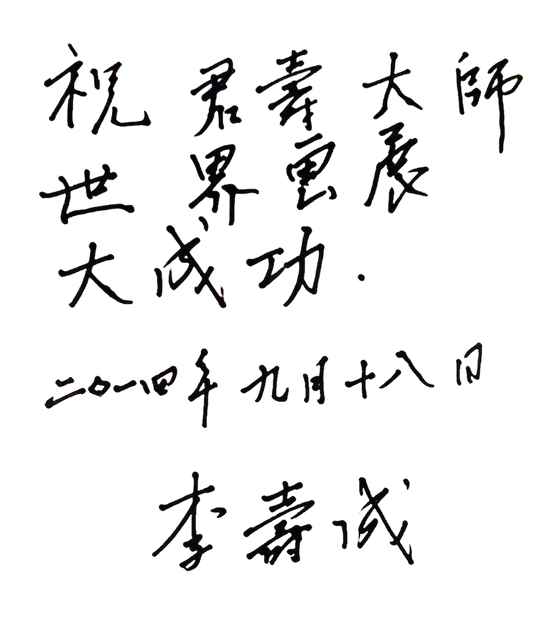 祝君壽大師
世界畫展
大成功.
二〇一四年九月十八日
李壽成